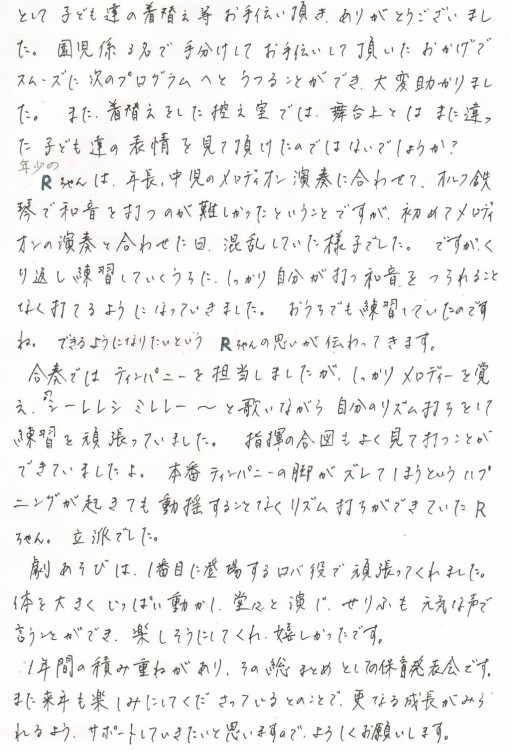 として子ども達の着替え等お手伝い頂き、ありがとうございまし
た。園児係3名で手分けしてお手伝いして頂いたおかげで
スムーズに次のプログラムへとうつることができ、大変助かりまし
た。また、着替えをした控え室では、舞台上とはまた違っ
た子ども達の表情を見て頂けたのではないでしょうか?
年少の
Rちゃんは、年長、中児のメロディオン演奏に合わせて、オルフ鉄
琴で和音を打つのが難しかったということですが、初めてメロディ
オンの演奏と合わせた日、混乱していた様子でした。ですが、く
り返し練習していくうちに、しっかり自分が打つ和音をつられること
なく打てるようになっていきました。おうちでも練習していたのです
ね。できるようになりたいという Rちゃんの思いが伝わってきます。
合奏ではティンパニーを担当しましたが、しっかりメロディーを覚
え、♪シーレレシ ミレレー〜と歌いながら自分のリズム打ちをして
練習を頑張っていました。指揮の合図もよく見て打つことが
できていましたよ。本番ティンパニーの脚がズレてしまうというハプ
ニングが起きても動揺することなくリズム打ちができていたR
ちゃん。立派でした。
劇あそびは、1番目に登場するロバ役で頑張ってくれました。
体を大きくいっぱい動かし、堂々と演じ、せりふも元気な声で
言うことができ、楽しそうにしてくれ、嬉しかったです。
1年間の積み重ねがあり、その総まとめとしての保育発表会です。
また来年も楽しみにしてくださっているとのことで、更なる成長がみら
れるよう、サポートしていきたいと思いますので、よろしくお願いします。